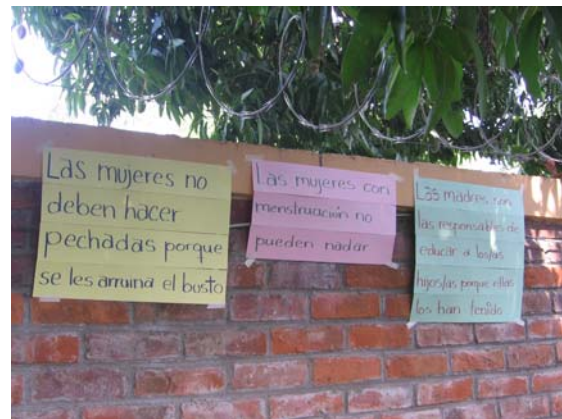 Las mujeres no
deben hacer
pechadas porque
se les arruina el busto
Las mujeres con
menstruación no
pueden nadar
Las madres son
las responsables de
educar a los/as
hijos/as porque ellas
los han tenido